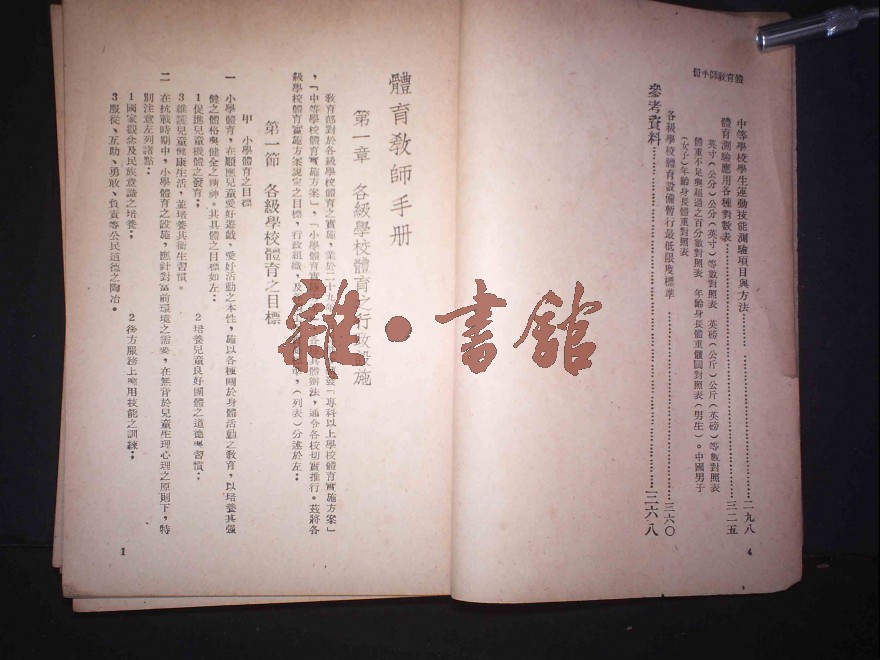 體育教師手冊
中等學校學生運動技能測驗項目與方法……二九八
體育測驗應用各種對數表……三二五
英寸（公分）公分（英寸）等數對照表　英磅（公斤）公斤（英磅）等數對照表
體重不足與超過之百分數對照表　年齡身長體重體圍對照表（男生）。中國男子
（女子）年齡身長體重對照表
各級學校體育設備暫行最低限度標準……三六〇
參考資料……三六八
4
體育教師手册
第一章　各級學校體育之行政設施
教育部對於各級學校體育之實施，業於二十九年「專科以上學校體育實施方案」
，「中等學校體育實施方案」，「小學體育實施具體辦法，通令各校切實推行。茲將各
級學校體育實施方案規定之目標，行政組織，及（列表）分述於左：
第一節　各級學校體育之目標
甲　小學體育之目標
一　小學體育，在順應兒童愛好遊戲，愛好活動之本性，施以各種關於身體活動之教育，以培養其强
健之體格與健全之精神。其具體之目標如左：
1促進兒童機體之發育；　2培養兒童良好團體之道德與習慣；
3維護兒童健康生活，並培養其衛生習慣。
二　在抗戰時期中，小學體育之設施，應針對當前環境之需要，在無背於兒童生理心理之原則下，特
別注意左列諸點：
1國家觀念及民族意識之培養；　2後方服務上應用技能之訓練；
3服從、互助、勇敢、負責等公民道德之陶冶。
1
雜·書館